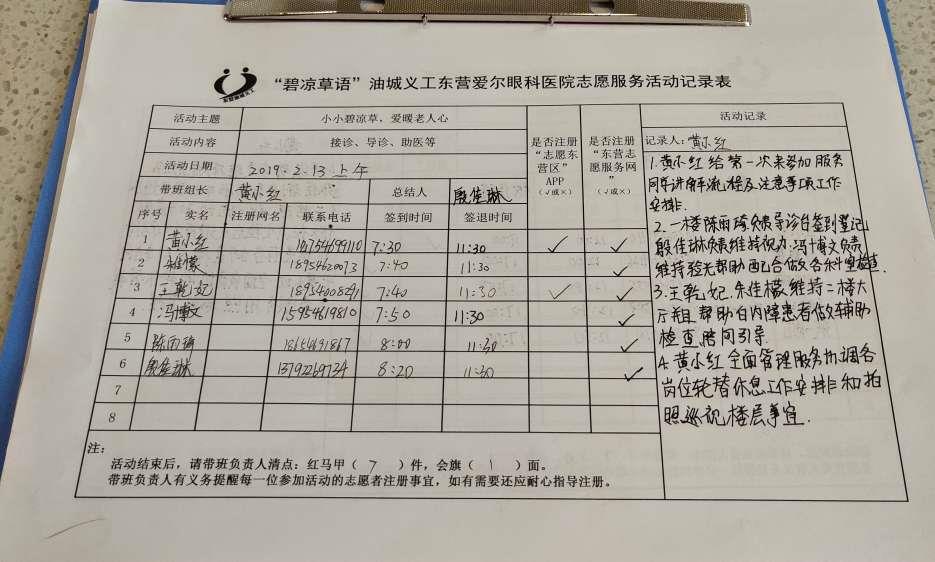 “碧凉草语”油城义工东营爱尔眼科医院志愿服务活动记录表
活动主题 小小碧凉草，爱暖老人心
活动内容 接诊、导诊、助医等
活动日期 2019.2.13 上午
带班组长 黄小红 总结人 殷佳琳
是否注册“志愿东营区”APP（√或×）
是否注册“东营志愿服务网”（√或×）
序号 实名 注册网名 联系电话 签到时间 签退时间
1 黄小红 7:30 11:30 ✓ ✓
2 朱佳檬 18954620073 7:40 11:30 ✓
3 王乾妃 18954008291 7:40 11:30 ✓ ✓
4 冯博文 15954619810 7:50 11:30 ✓
5 陈雨琦 18654691867 8:00 11:30 ✓
6 殷佳琳 13792269734 8:20 11:30 ✓
7
8
活动记录
记录人：黄小红
1.黄小红给第一次来参加服务
同学讲解流程及注意事项工作
安排.
2.一楼陈雨琦负责导诊台签到登记
殷佳琳负责维持视力.冯博文负责
维持验光帮助配合做各科室检查.
3.王乾妃.朱佳檬维持二楼大
厅和帮助白内障患者做辅助
检查陪同引导.
4.黄小红全面管理服务协调各
岗位轮替休息工作安排和拍
照巡视楼层事宜.
注：
活动结束后，请带班负责人清点：红马甲（ 7 ）件，会旗（ 1 ）面。
带班负责人有义务提醒每一位参加活动的志愿者注册事宜，如有需要还应耐心指导注册。